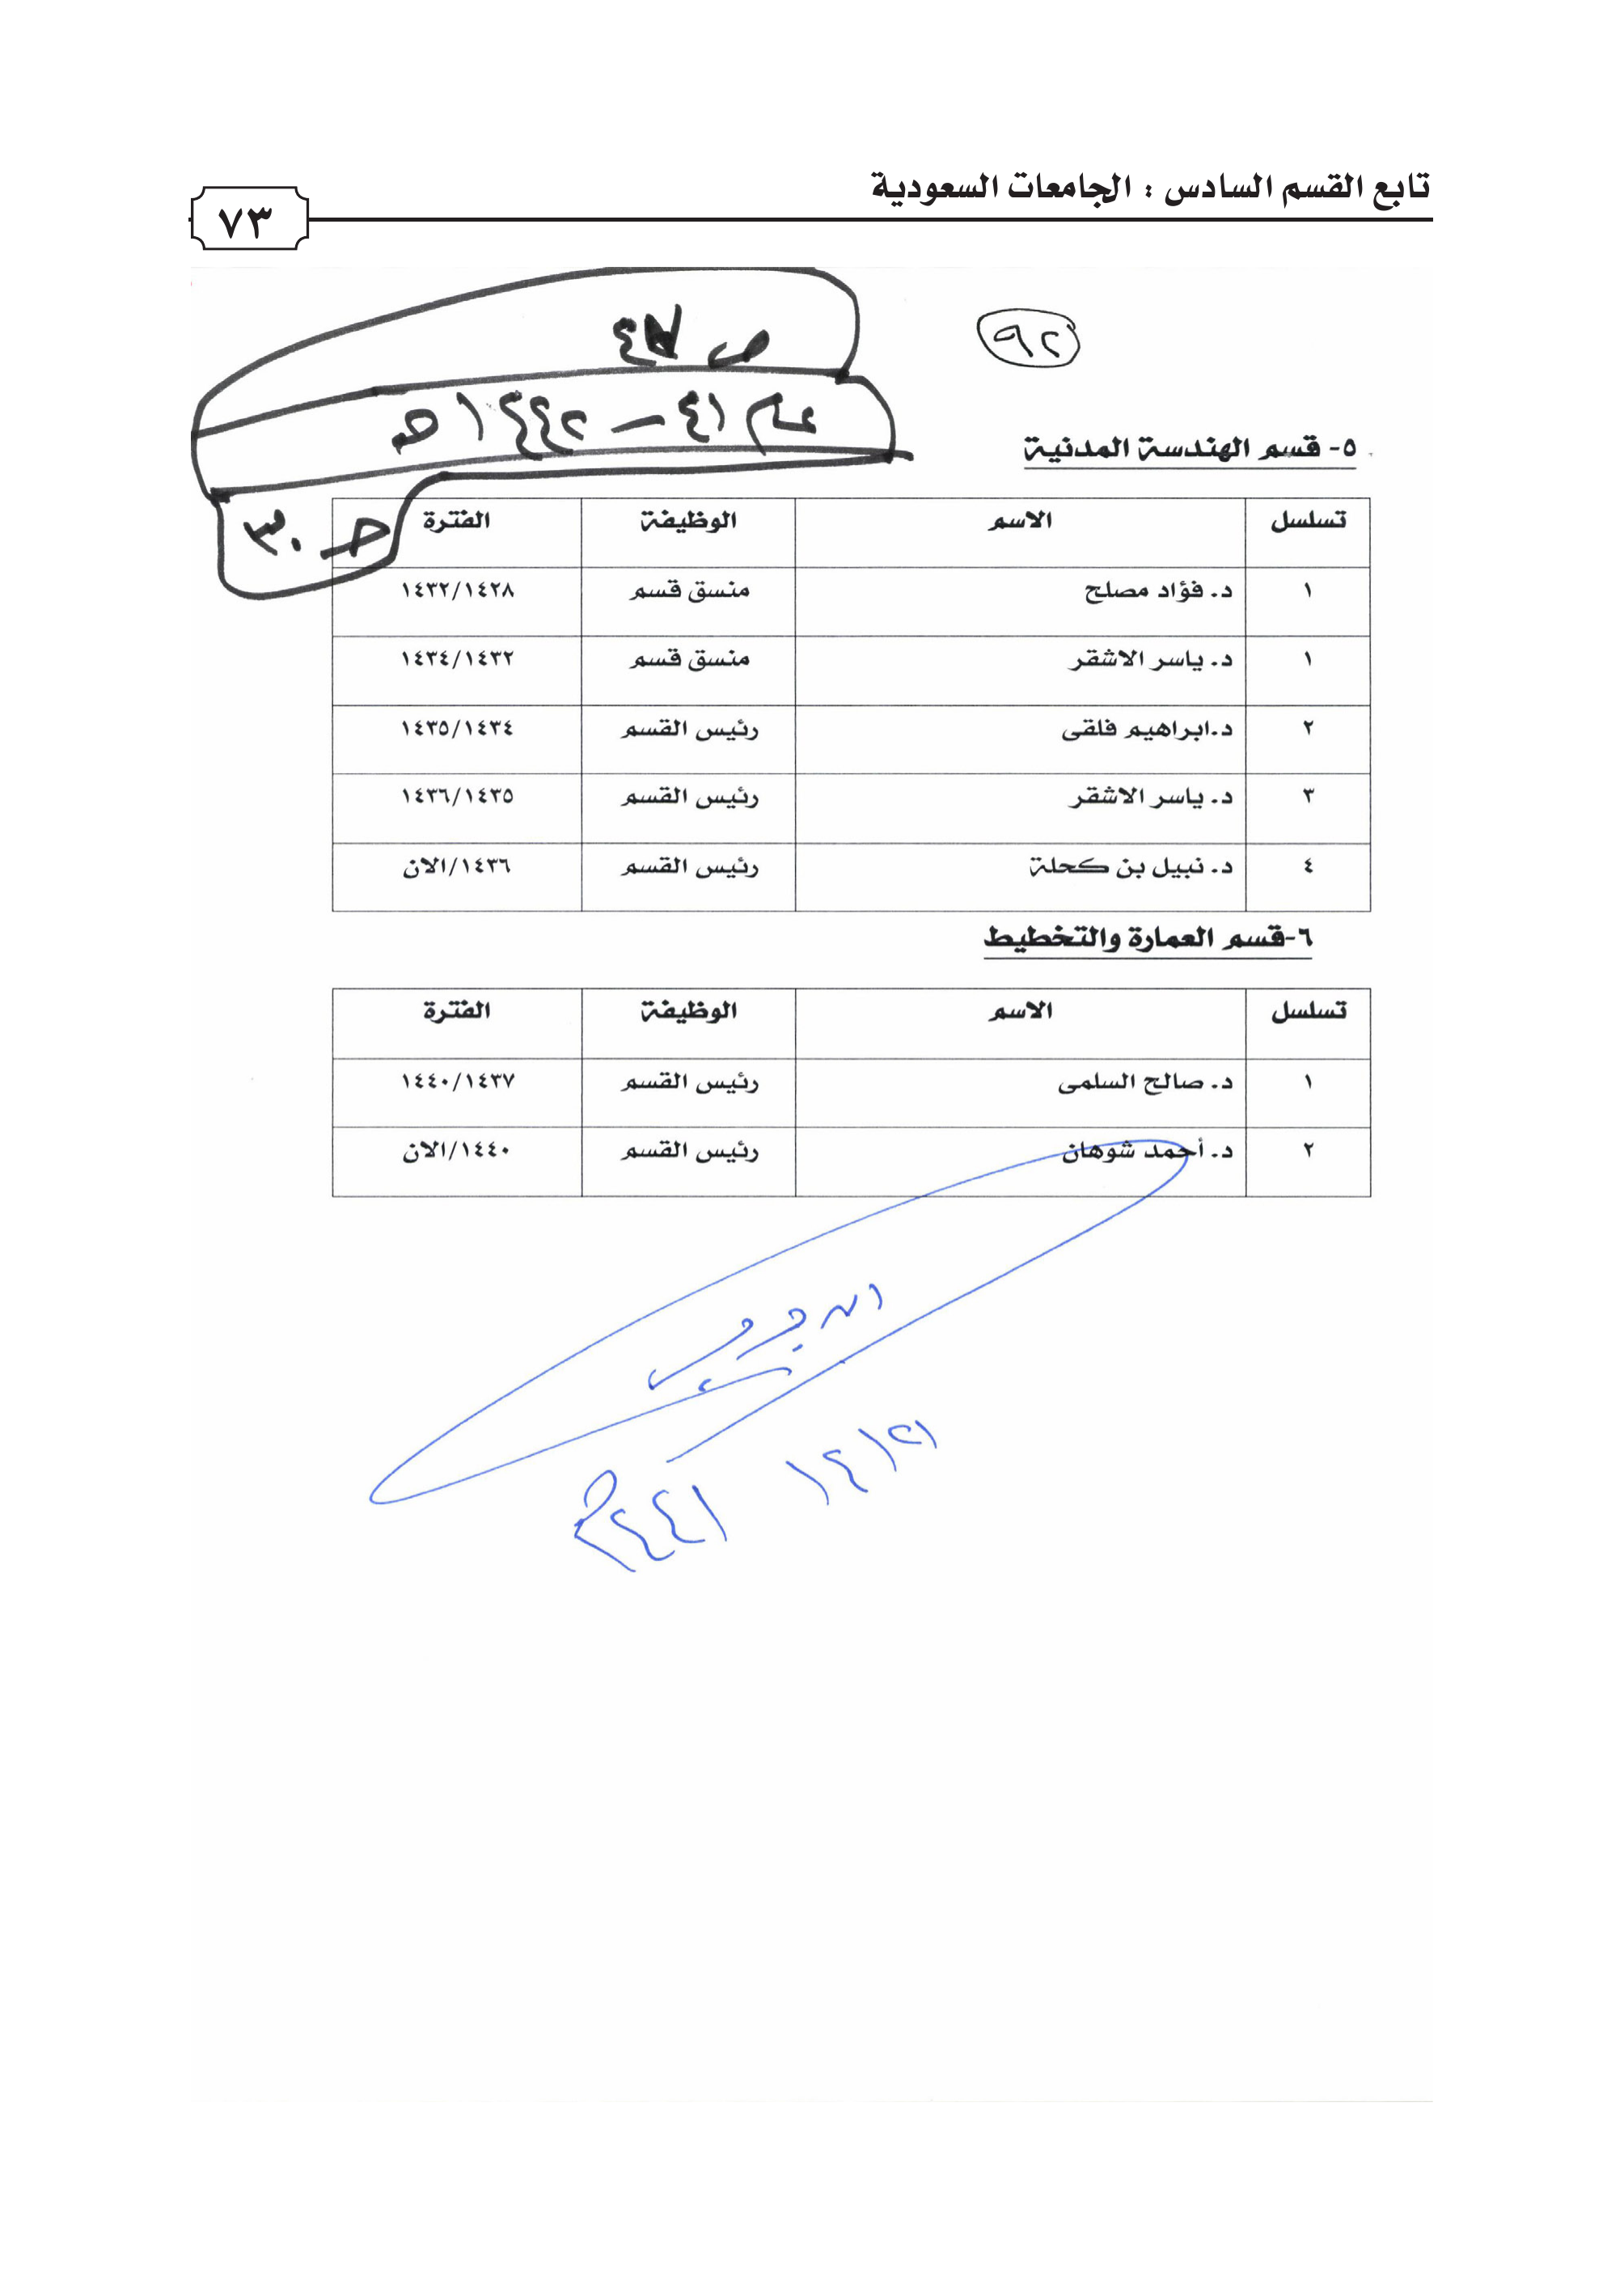 تابع القسم السادس : الجامعات السعودية
٧٣
٩٢
عام ٤١ – ١٤٤٢هـ
حـ ٣٠
٥- قسم الهندسة المدنية
تسلسل الاسم الوظيفة الفترة
١ د. فؤاد مصلح منسق قسم ١٤٣٢/١٤٢٨
١ د. ياسر الاشقر منسق قسم ١٤٣٤/١٤٣٢
٢ د.ابراهيم فلقى رئيس القسم ١٤٣٥/١٤٣٤
٣ د. ياسر الاشقر رئيس القسم ١٤٣٦/١٤٣٥
٤ د. نبيل بن كحلة رئيس القسم ١٤٣٦/الان
٦-قسم العمارة والتخطيط
تسلسل الاسم الوظيفة الفترة
١ د. صالح السلمى رئيس القسم ١٤٤٠/١٤٣٧
٢ د. أحمد شوهان رئيس القسم ١٤٤٠/الان